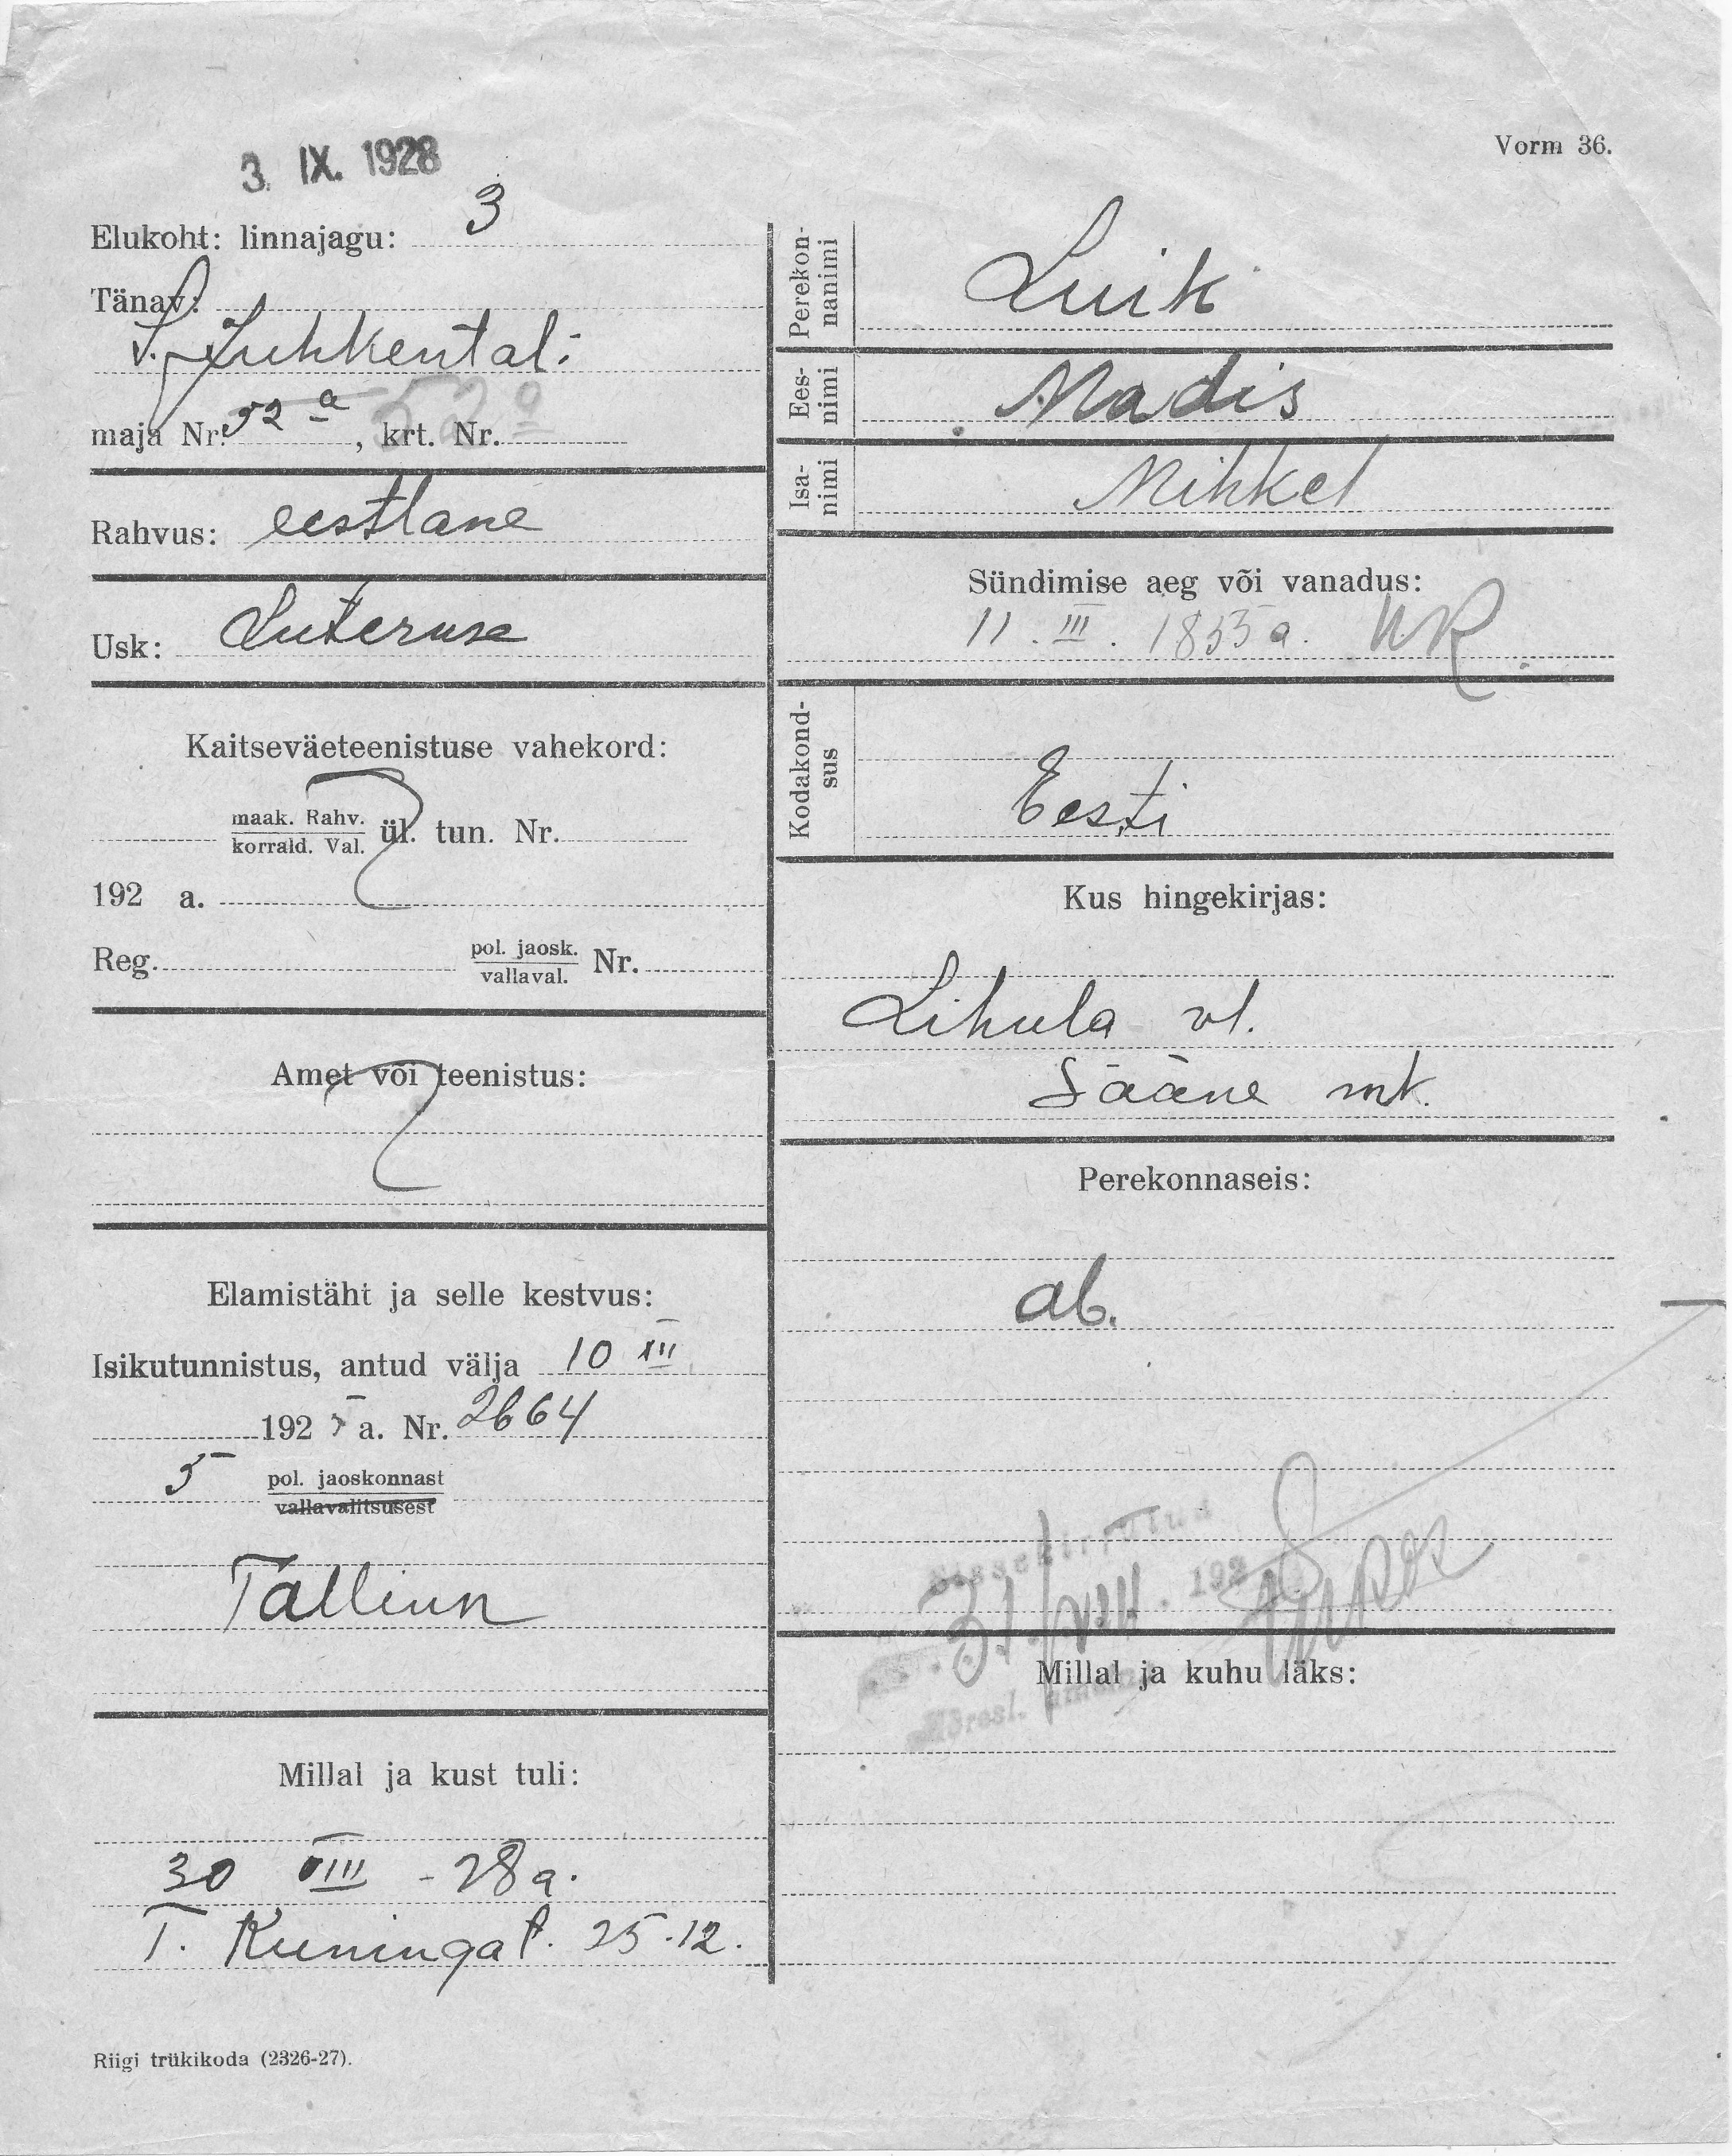 3. IX. 1928
Vorm 36.
Elukoht: linnajagu: 3
Tänav:
S. Juhkentali
maja Nr. 52 a, krt. Nr.
52 a
Rahvus: eestlane
Usk: Luteruse
Kaitseväeteenistuse vahekord:
maak. Rahv.
korrald. Val. ül. tun. Nr.
192 a.
Reg. pol. jaosk.
vallaval. Nr.
Amet või teenistus:
Elamistäht ja selle kestvus:
Isikutunnistus, antud välja 10 XII
192 5 a. Nr. 2664
5 pol. jaoskonnast
vallavalitsusest
Tallinn
Millal ja kust tuli:
30 VIII - 28 a.
T. Kuninga t. 25-12.
Riigi trükikoda (2326-27).
Perekon-
nanimi
Luik
Ees-
nimi
Madis
Isa-
nimi
Mihkel
Sündimise aeg või vanadus:
11. III. 1855 a.
Kodakond-
sus
Eesti
Kus hingekirjas:
Lihula vl.
Lääne mk.
Perekonnaseis:
ab.
Sissekirjutud
31. VIII. 192
Millal ja kuhu läks: